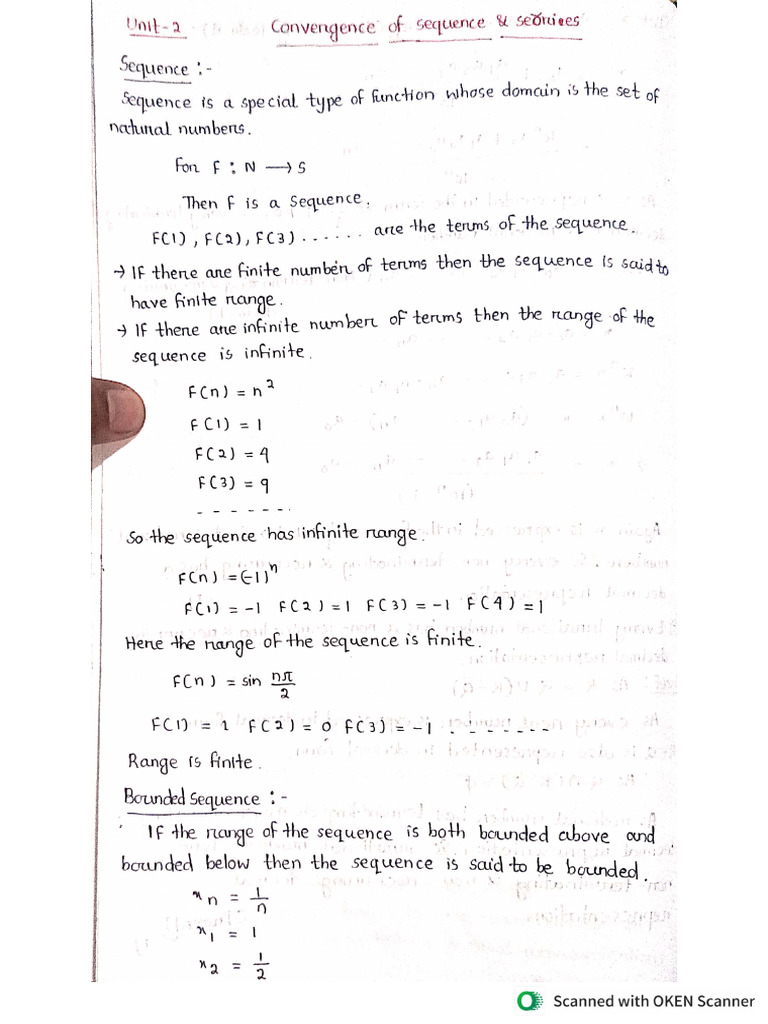 Unit-2 Convengence of sequence & seories
Sequence :-
Sequence is a special type of function whose domain is the set of
natural numbers.
For F : N → S
Then F is a Sequence.
F(1), F(2), F(3) ...... are the terms of the sequence.
→ If there are finite number of terms then the sequence is said to
have finite range.
→ If there are infinite number of terms then the range of the
sequence is infinite.
F(n) = n²
F(1) = 1
F(2) = 4
F(3) = 9
- - - - - - -
So the sequence has infinite range.
F(n) = (-1)ⁿ
F(1) = -1 F(2) = 1 F(3) = -1 F(4) = 1
Here the range of the sequence is finite.
F(n) = sin nπ/2
F(1) = 1 F(2) = 0 F(3) = -1 - - - - - - - -
Range is finite.
Bounded Sequence :-
If the range of the sequence is both bounded above and
bounded below then the sequence is said to be bounded.
xn = 1/n
x1 = 1
x2 = 1/2
Scanned with OKEN Scanner